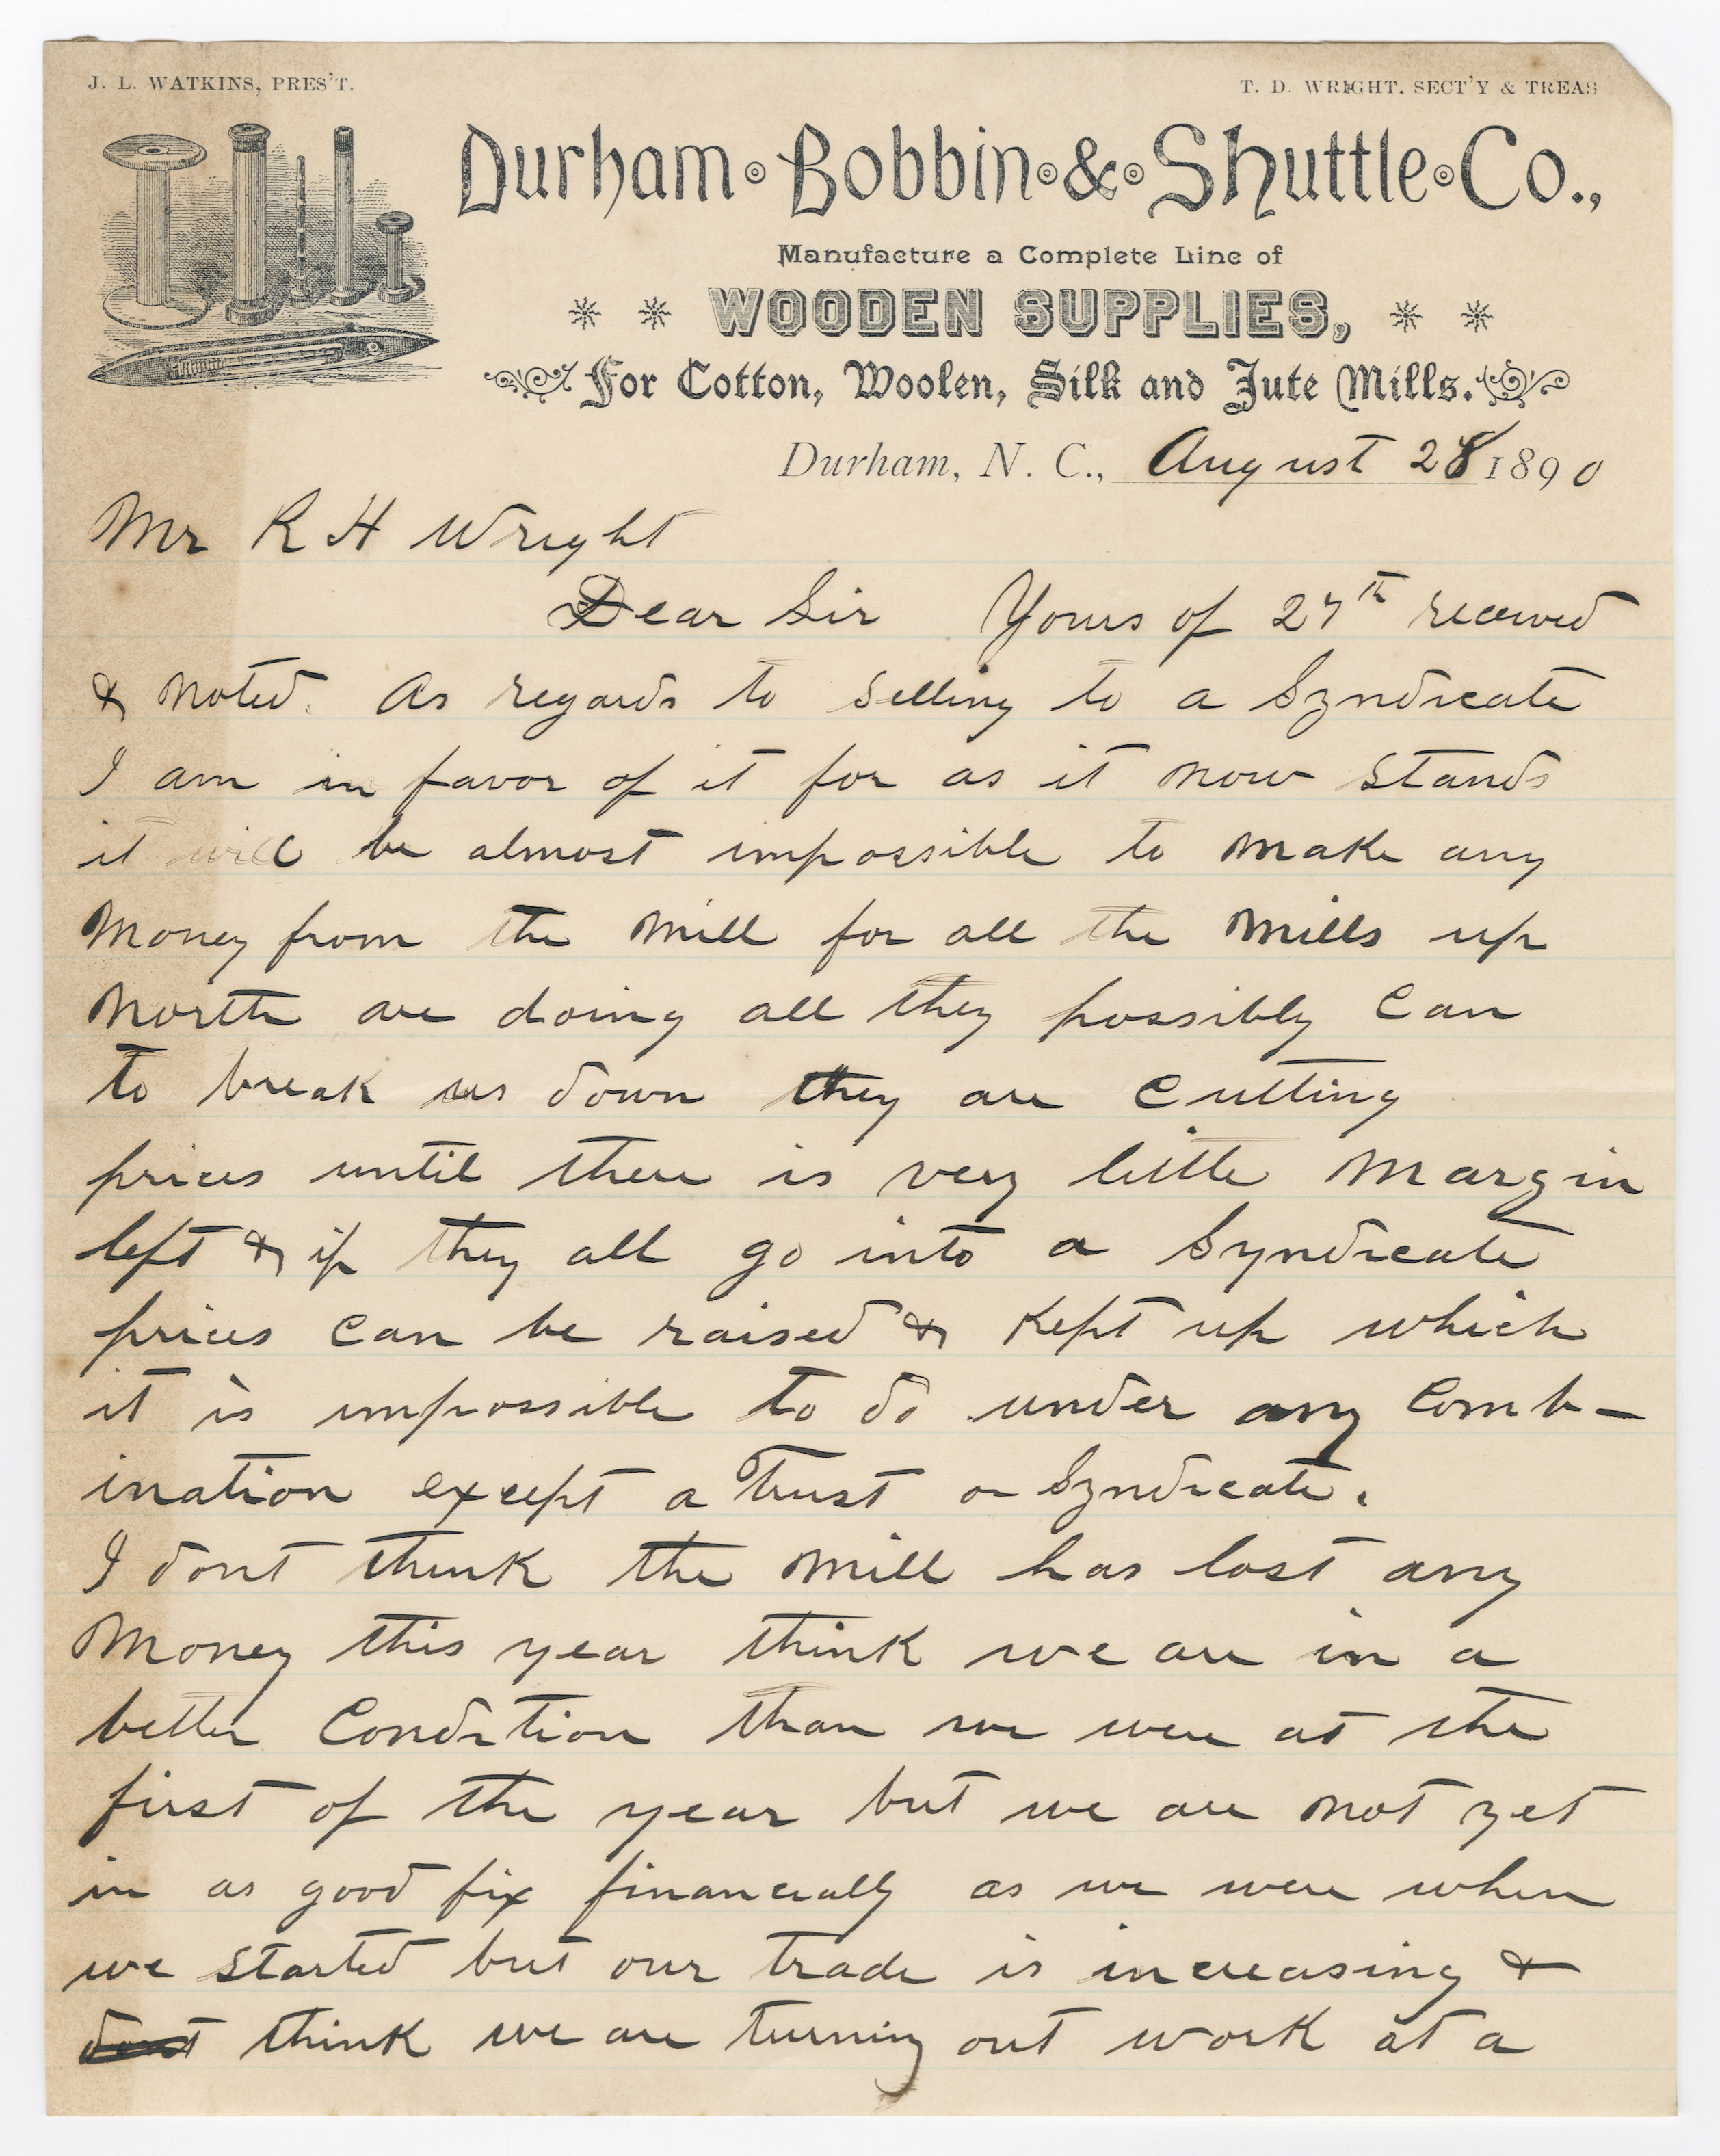 J. L. WATKINS, PRES'T.
T. D. WRIGHT, SECT'Y & TREAS
Durham Bobbin & Shuttle Co.,
Manufacture a Complete Line of
WOODEN SUPPLIES,
For Cotton, Woolen, Silk and Jute Mills.
Durham, N. C., August 28 1890
Mr R H Wright
Dear Sir Yours of 27th received
& noted. As regards to selling to a Syndicate
I am in favor of it for as it now stands
it will be almost impossible to make any
money from the mill for all the mills up
north are doing all they possibly can
to break us down they are cutting
prices until there is very little margin
left & if they all go into a Syndicate
prices can be raised & kept up which
it is impossible to do under any comb-
ination except a Trust or Syndicate.
I dont think the mill has lost any
money this year think we are in a
better condition than we were at the
first of the year but we are not yet
in as good fix financially as we were when
we started but our trade is increasing &
dont think we are turning out work at a